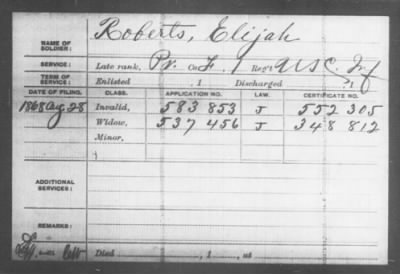 NAME OF SOLDIER: Roberts, Elijah
SERVICE: Late rank, Pv. Co. F, 1 Reg't U S C. Inf
TERM OF SERVICE: Enlisted , 1 Discharged , 1
DATE OF FILING. CLASS. APPLICATION NO. LAW. CERTIFICATE NO.
1868 Aug 28 Invalid, 583 853 J 552 305
Widow, 537 456 J 348 812
Minor,
ADDITIONAL SERVICES:
REMARKS:
Died , 1 , at